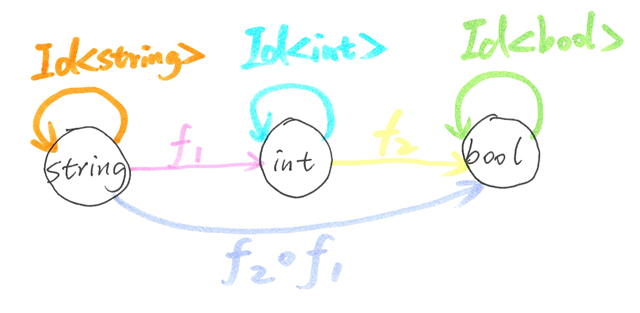 Id<string>
Id<int>
Id<bool>
f₁
f₂
string
int
bool
f₂∘f₁